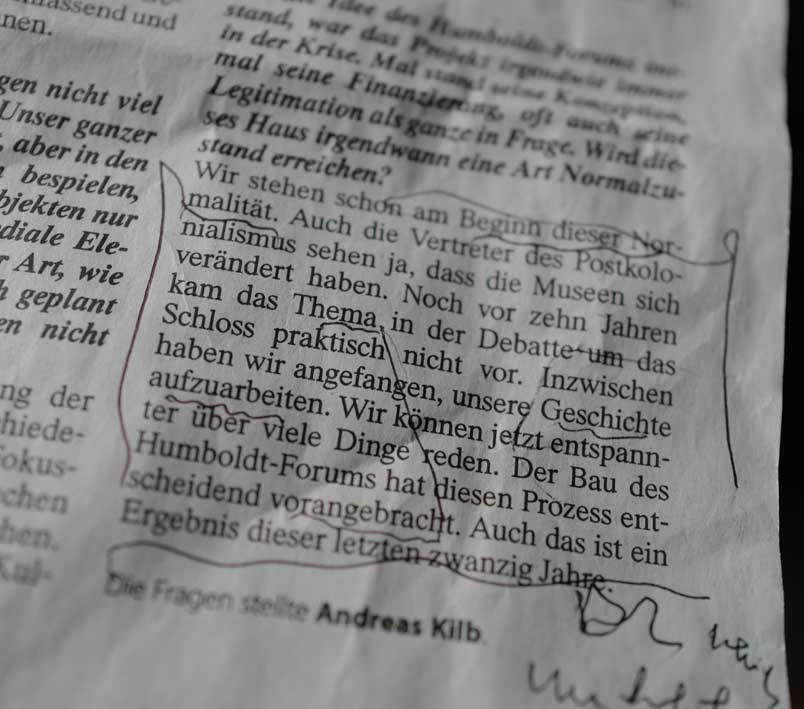 assend und
nen.
gen nicht viel
Unser ganzer
, aber in den
bespielen,
bjekten nur
diale Ele-
r Art, wie
h geplant
en nicht
ng der
chiede-
Fokus-
schen
hen.
Kul-
Idee des Humboldt-Forums
stand, war das Projekt irgendwie immer
in der Krise. Mal stand seine Konzeption,
mal seine Finanzierung, oft auch seine
Legitimation als ganze in Frage. Wird die-
ses Haus irgendwann eine Art Normalzu-
stand erreichen?
Wir stehen schon am Beginn dieser Nor-
malität. Auch die Vertreter des Postkolo-
nialismus sehen ja, dass die Museen sich
verändert haben. Noch vor zehn Jahren
kam das Thema in der Debatte um das
Schloss praktisch nicht vor. Inzwischen
haben wir angefangen, unsere Geschichte
aufzuarbeiten. Wir können jetzt entspann-
ter über viele Dinge reden. Der Bau des
Humboldt-Forums hat diesen Prozess ent-
scheidend vorangebracht. Auch das ist ein
Ergebnis dieser letzten zwanzig Jahre.
Die Fragen stellte Andreas Kilb.